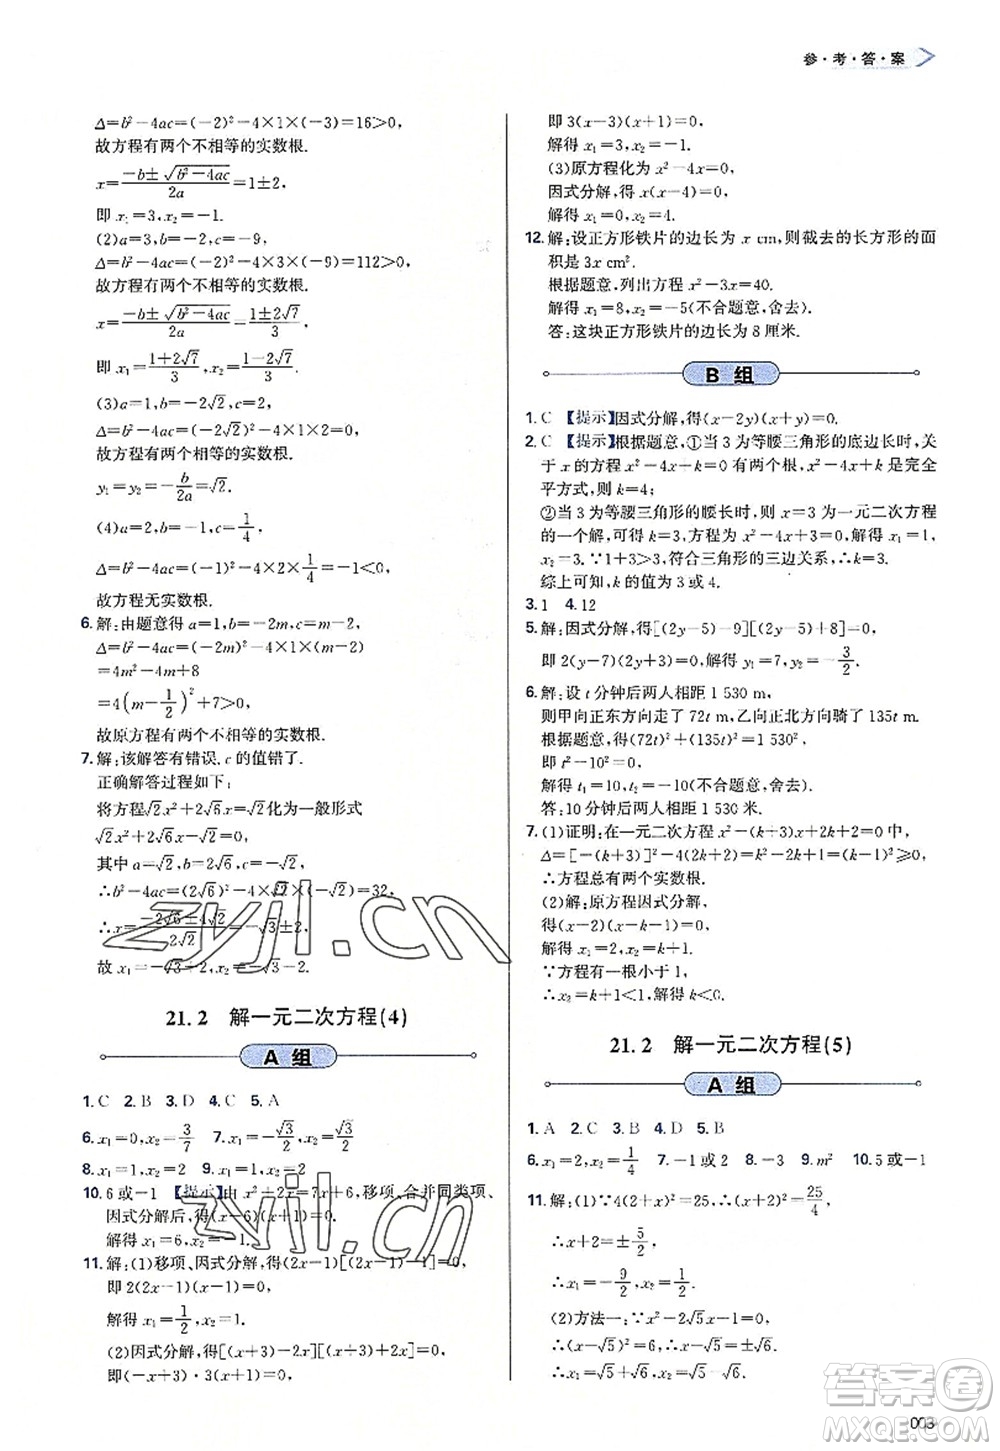 参·考·答·案
Δ=b²-4ac=(-2)²-4×1×(-3)=16>0,
故方程有两个不相等的实数根.
x=\frac{-b±\sqrt{b²-4ac}}{2a}=1±2,
即 x₁=3,x₂=-1.
(2)a=3,b=-2,c=-9,
Δ=b²-4ac=(-2)²-4×3×(-9)=112>0,
故方程有两个不相等的实数根.
x=\frac{-b±\sqrt{b²-4ac}}{2a}=\frac{1±2√7}{3},
即 x₁=\frac{1+2√7}{3},x₂=\frac{1-2√7}{3}.
(3)a=1,b=-2√2,c=2,
Δ=b²-4ac=(-2√2)²-4×1×2=0,
故方程有两个相等的实数根.
y₁=y₂=-\frac{b}{2a}=√2.
(4)a=2,b=-1,c=\frac{1}{4},
Δ=b²-4ac=(-1)²-4×2×\frac{1}{4}=-1<0,
故方程无实数根.
6.解:由题意得 a=1,b=-2m,c=m-2,
Δ=b²-4ac=(-2m)²-4×1×(m-2)
=4m²-4m+8
=4(m-\frac{1}{2})²+7>0,
故原方程有两个不相等的实数根.
7.解:该解答有错误.c的值错了.
正确解答过程如下:
将方程√2x²+2√6x=√2化为一般形式
√2x²+2√6x-√2=0,
其中 a=√2,b=2√6,c=-√2,
∴b²-4ac=(2√6)²-4×√2×(-√2)=32,
∴x=\frac{-2√6±4√2}{2√2}=-√3±2,
故 x₁=-√3+2,x₂=-√3-2.
21.2 解一元二次方程(4)
A 组
1.C 2.B 3.D 4.C 5.A
6.x₁=0,x₂=\frac{3}{7} 7.x₁=-\frac{√3}{2},x₂=\frac{√3}{2}
8.x₁=1,x₂=2 9.x₁=1,x₂=-2
10.6或-1 【提示】由 x²+2x=7x+6,移项、合并同类项、
因式分解后,得(x-6)(x+1)=0,
解得 x₁=6,x₂=-1.
11.解:(1)移项、因式分解,得(2x-1)[(2x-1)+3]=0,
即 2(2x-1)(x+1)=0,
解得 x₁=\frac{1}{2},x₂=-1.
(2)因式分解,得[(x+3)-2x][(x+3)+2x]=0,
即(-x+3)·3(x+1)=0,
即 3(x-3)(x+1)=0,
解得 x₁=3,x₂=-1.
(3)原方程化为 x²-4x=0,
因式分解,得 x(x-4)=0,
解得 x₁=0,x₂=4.
12.解:设正方形铁片的边长为 x cm,则截去的长方形的面
积是 3x cm².
根据题意,列出方程 x²-3x=40.
解得 x₁=8,x₂=-5(不合题意,舍去).
答:这块正方形铁片的边长为 8 厘米.
B 组
1.C 【提示】因式分解,得(x-2y)(x+y)=0.
2.C 【提示】根据题意,①当 3 为等腰三角形的底边长时,关
于 x 的方程 x²-4x+k=0 有两个根,x²-4x+k 是完全
平方式,则 k=4;
②当 3 为等腰三角形的腰长时,则 x=3 为一元二次方程
的一个解,可得 k=3,方程为 x²-4x+3=0,解得 x₁=1,
x₂=3.∵1+3>3,符合三角形的三边关系,∴k=3.
综上可知,k 的值为 3 或 4.
3.1 4.12
5.解:因式分解,得[(2y-5)-9][(2y-5)+8]=0,
即 2(y-7)(2y+3)=0,解得 y₁=7,y₂=-\frac{3}{2}.
6.解:设 t 分钟后两人相距 1 530 m,
则甲向正东方向走了 72t m,乙向正北方向骑了 135t m.
根据题意,得(72t)²+(135t)²=1 530²,
即 t²-10²=0,
解得 t₁=10,t₂=-10(不合题意,舍去).
答:10 分钟后两人相距 1 530 米.
7.(1)证明:在一元二次方程 x²-(k+3)x+2k+2=0 中,
Δ=[-(k+3)]²-4(2k+2)=k²-2k+1=(k-1)²≥0,
∴方程总有两个实数根.
(2)解:原方程因式分解,
得(x-2)(x-k-1)=0,
解得 x₁=2,x₂=k+1.
∵方程有一根小于 1,
∴x₂=k+1<1,解得 k<0.
21.2 解一元二次方程(5)
A 组
1.A 2.C 3.B 4.D 5.B
6.x₁=2,x₂=\frac{1}{4} 7.-1或2 8.-3 9.m² 10.5或-1
11.解:(1)∵4(2+x)²=25,∴(x+2)²=\frac{25}{4},
∴x+2=±\frac{5}{2},
∴x₁=-\frac{9}{2},x₂=\frac{1}{2}.
(2)方法一:∵x²-2√5x-1=0,
∴(x-√5)²=6,∴x-√5=±√6,
∴x₁=√5+√6,x₂=√5-√6.
003
zyjl.cn
zyjl.cn
答案圈
MXQE.COM